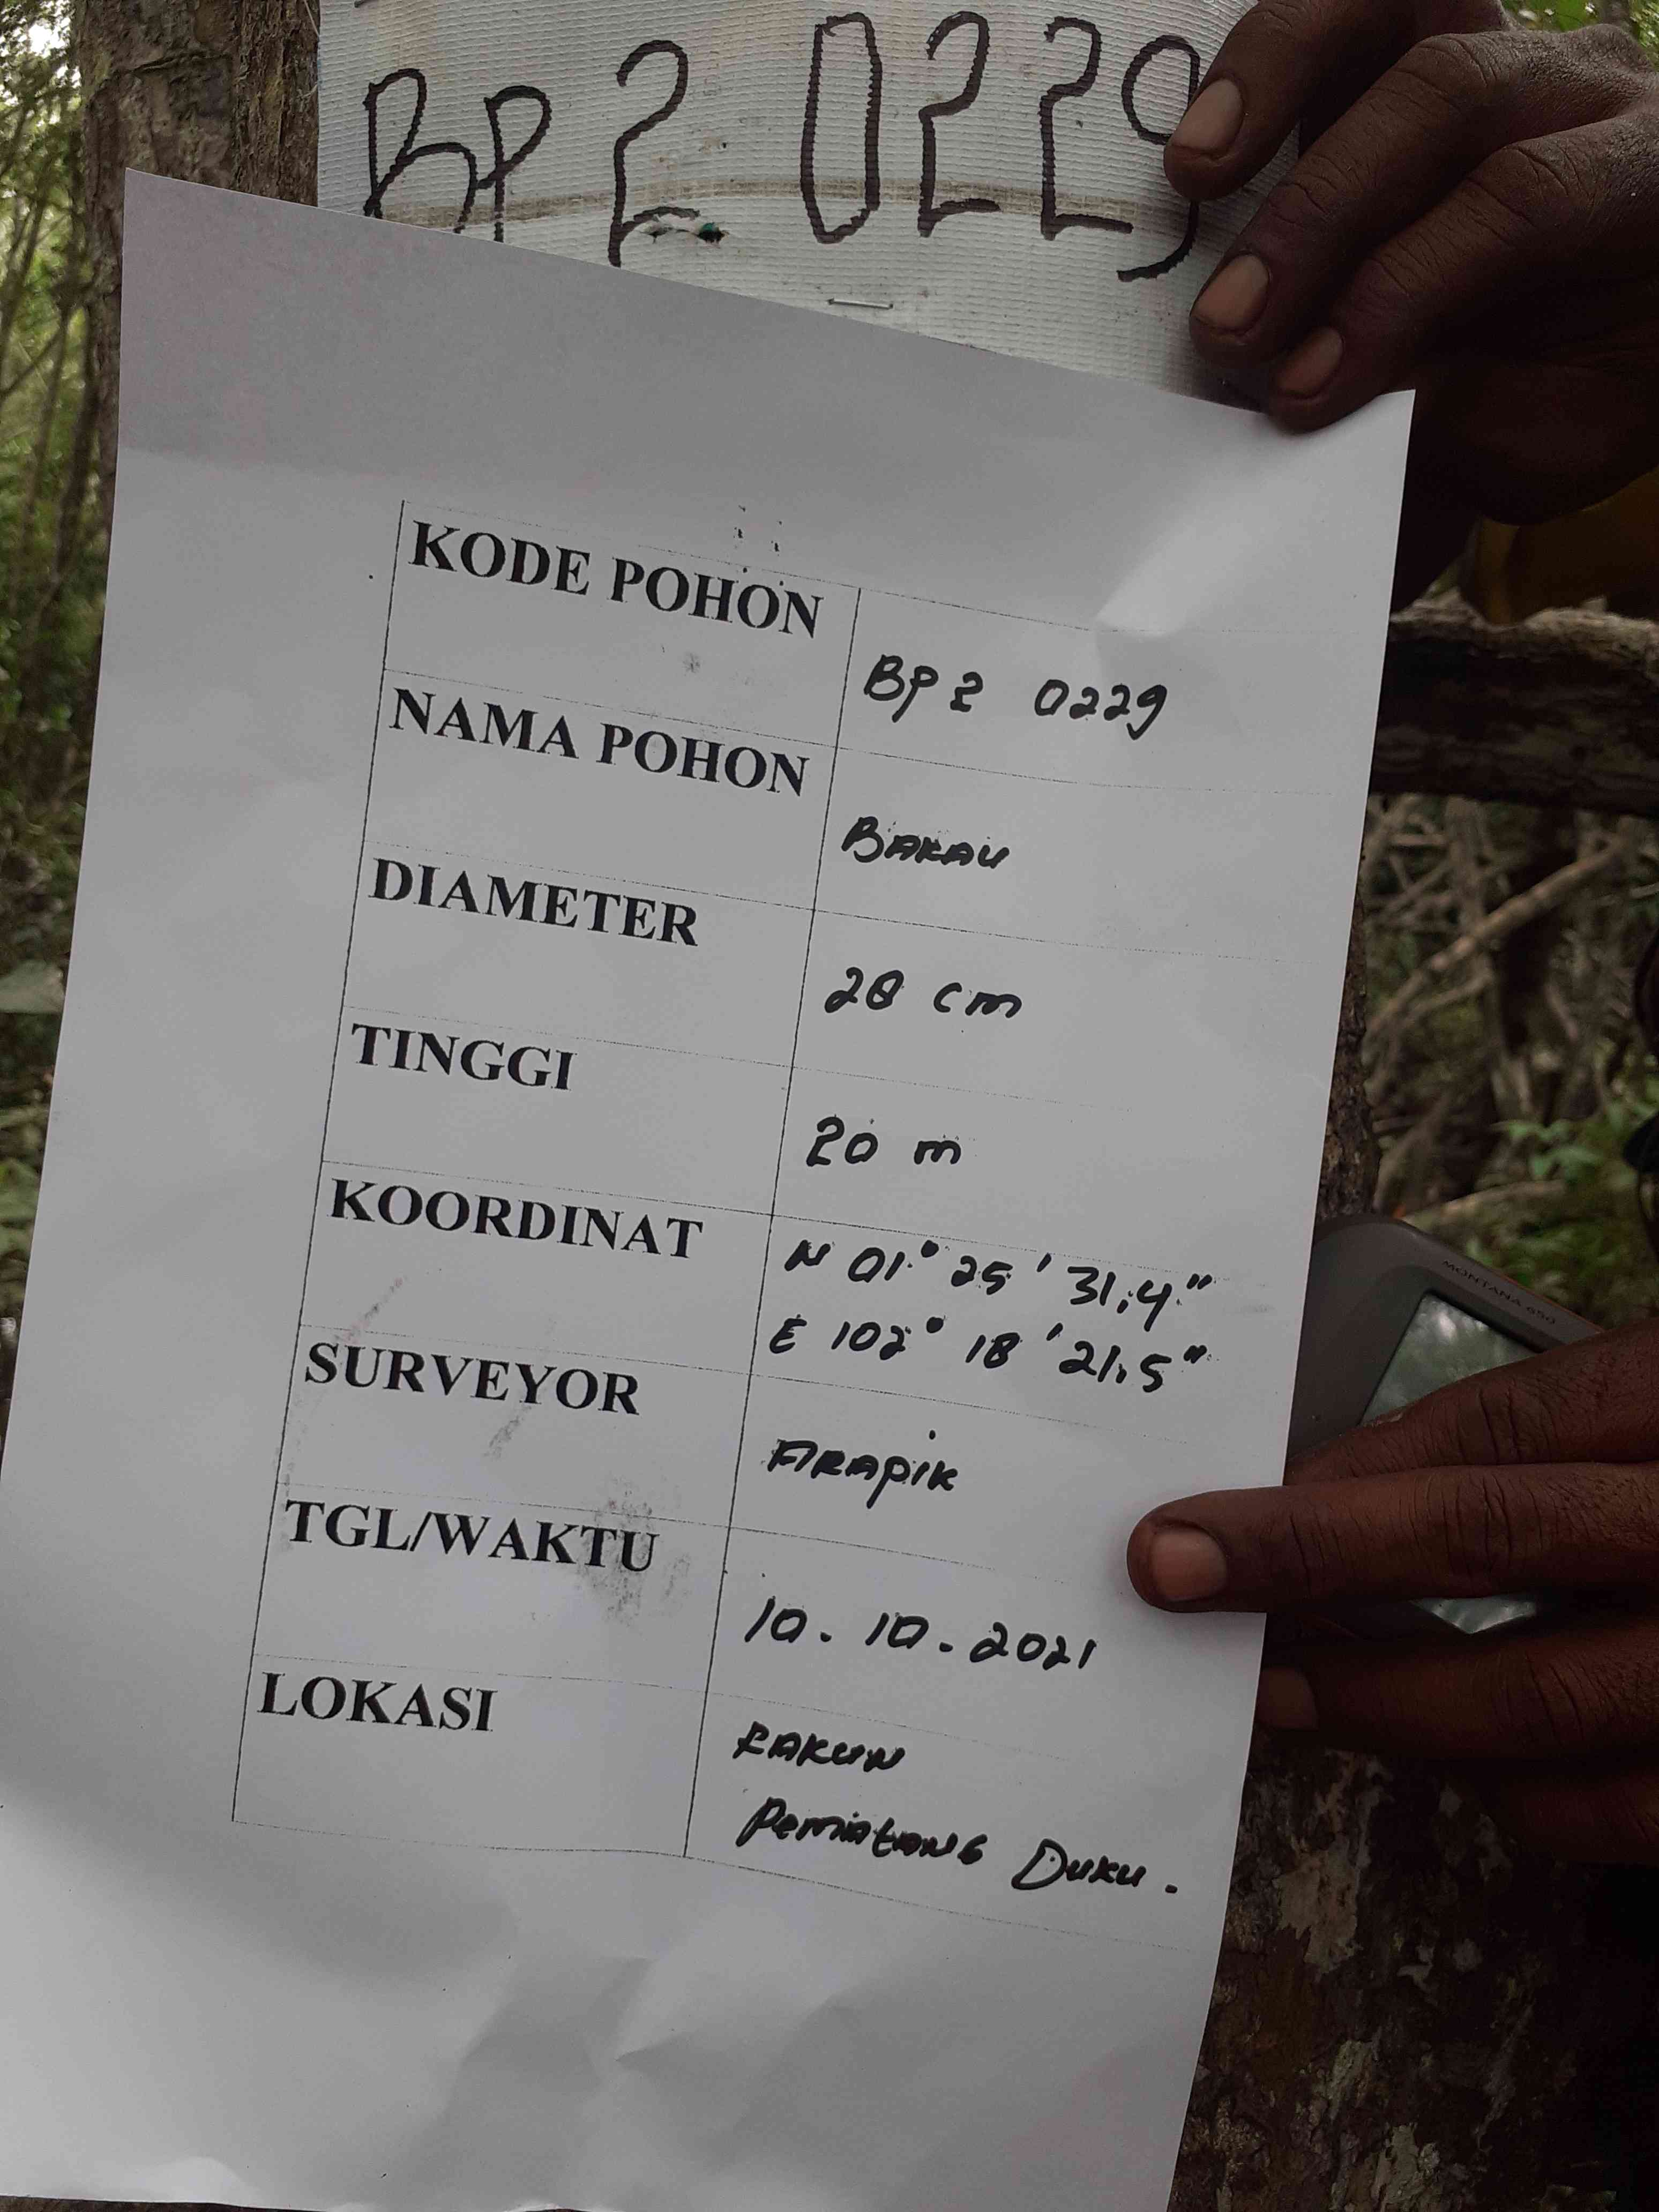 BP 2 0229
KODE POHON
BP 2 0229
NAMA POHON
BAKAU
DIAMETER
28 cm
TINGGI
20 m
KOORDINAT
N 01° 25 ' 31,4"
E 102° 18 ' 21,5"
SURVEYOR
ARAPIK
TGL/WAKTU
10 . 10 . 2021
LOKASI
RAKUN
PemAtANG DUKU .
MONTANA 650